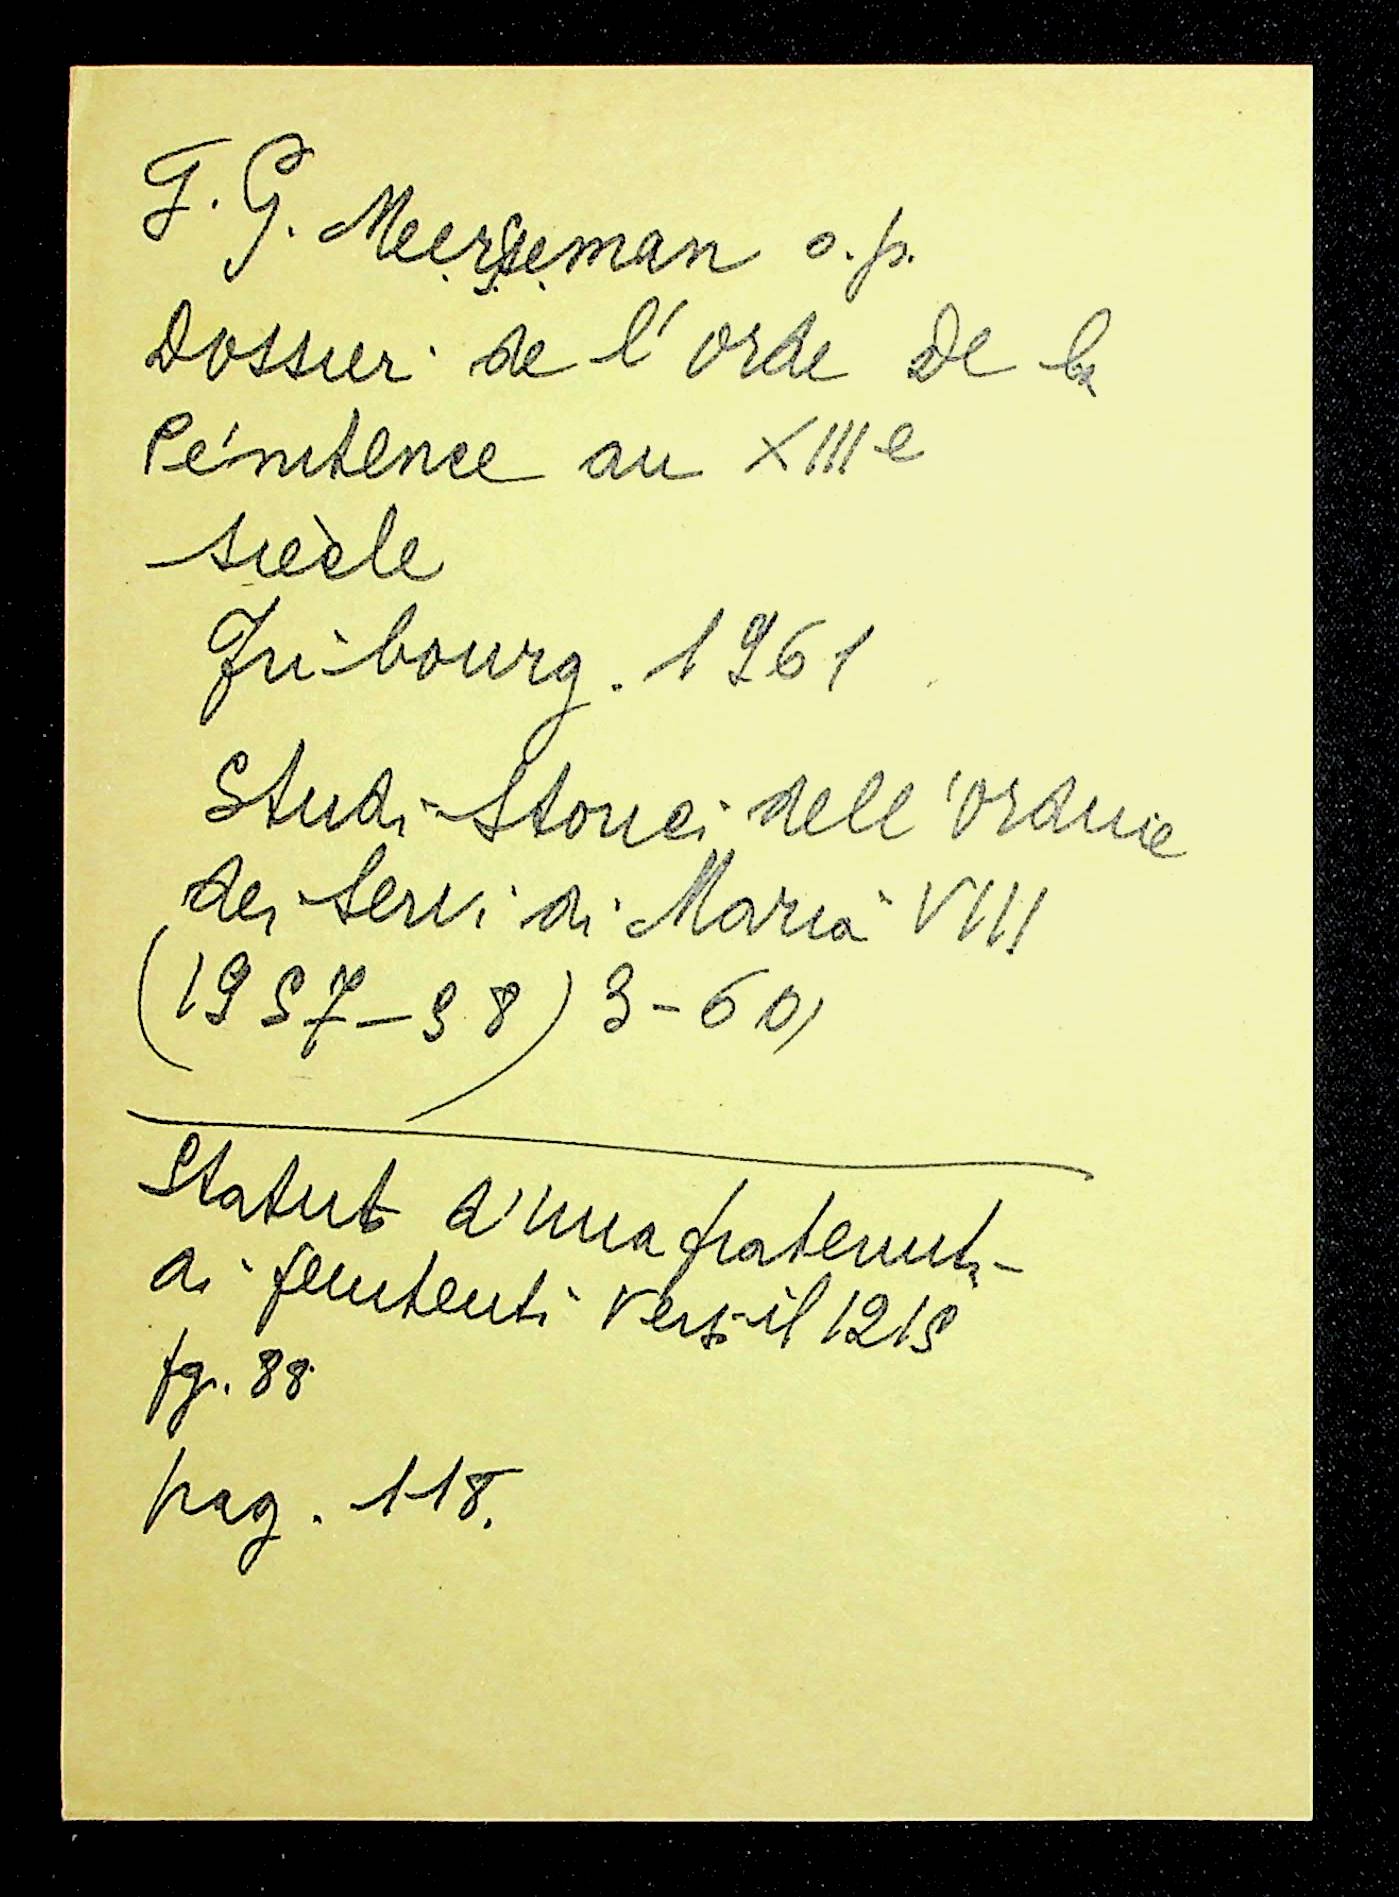 F. G. Meersseman o.p.
Dossier de l'orde de la
Pénitence au XIIIe
siècle
Fribourg. 1961
Studi Storici dell'ordine
dei Servi di Maria VIII
(1957-58) 3-60,
Statuto d'una fraternità
di penitenti verso il 1215
pg. 88
pag. 118.